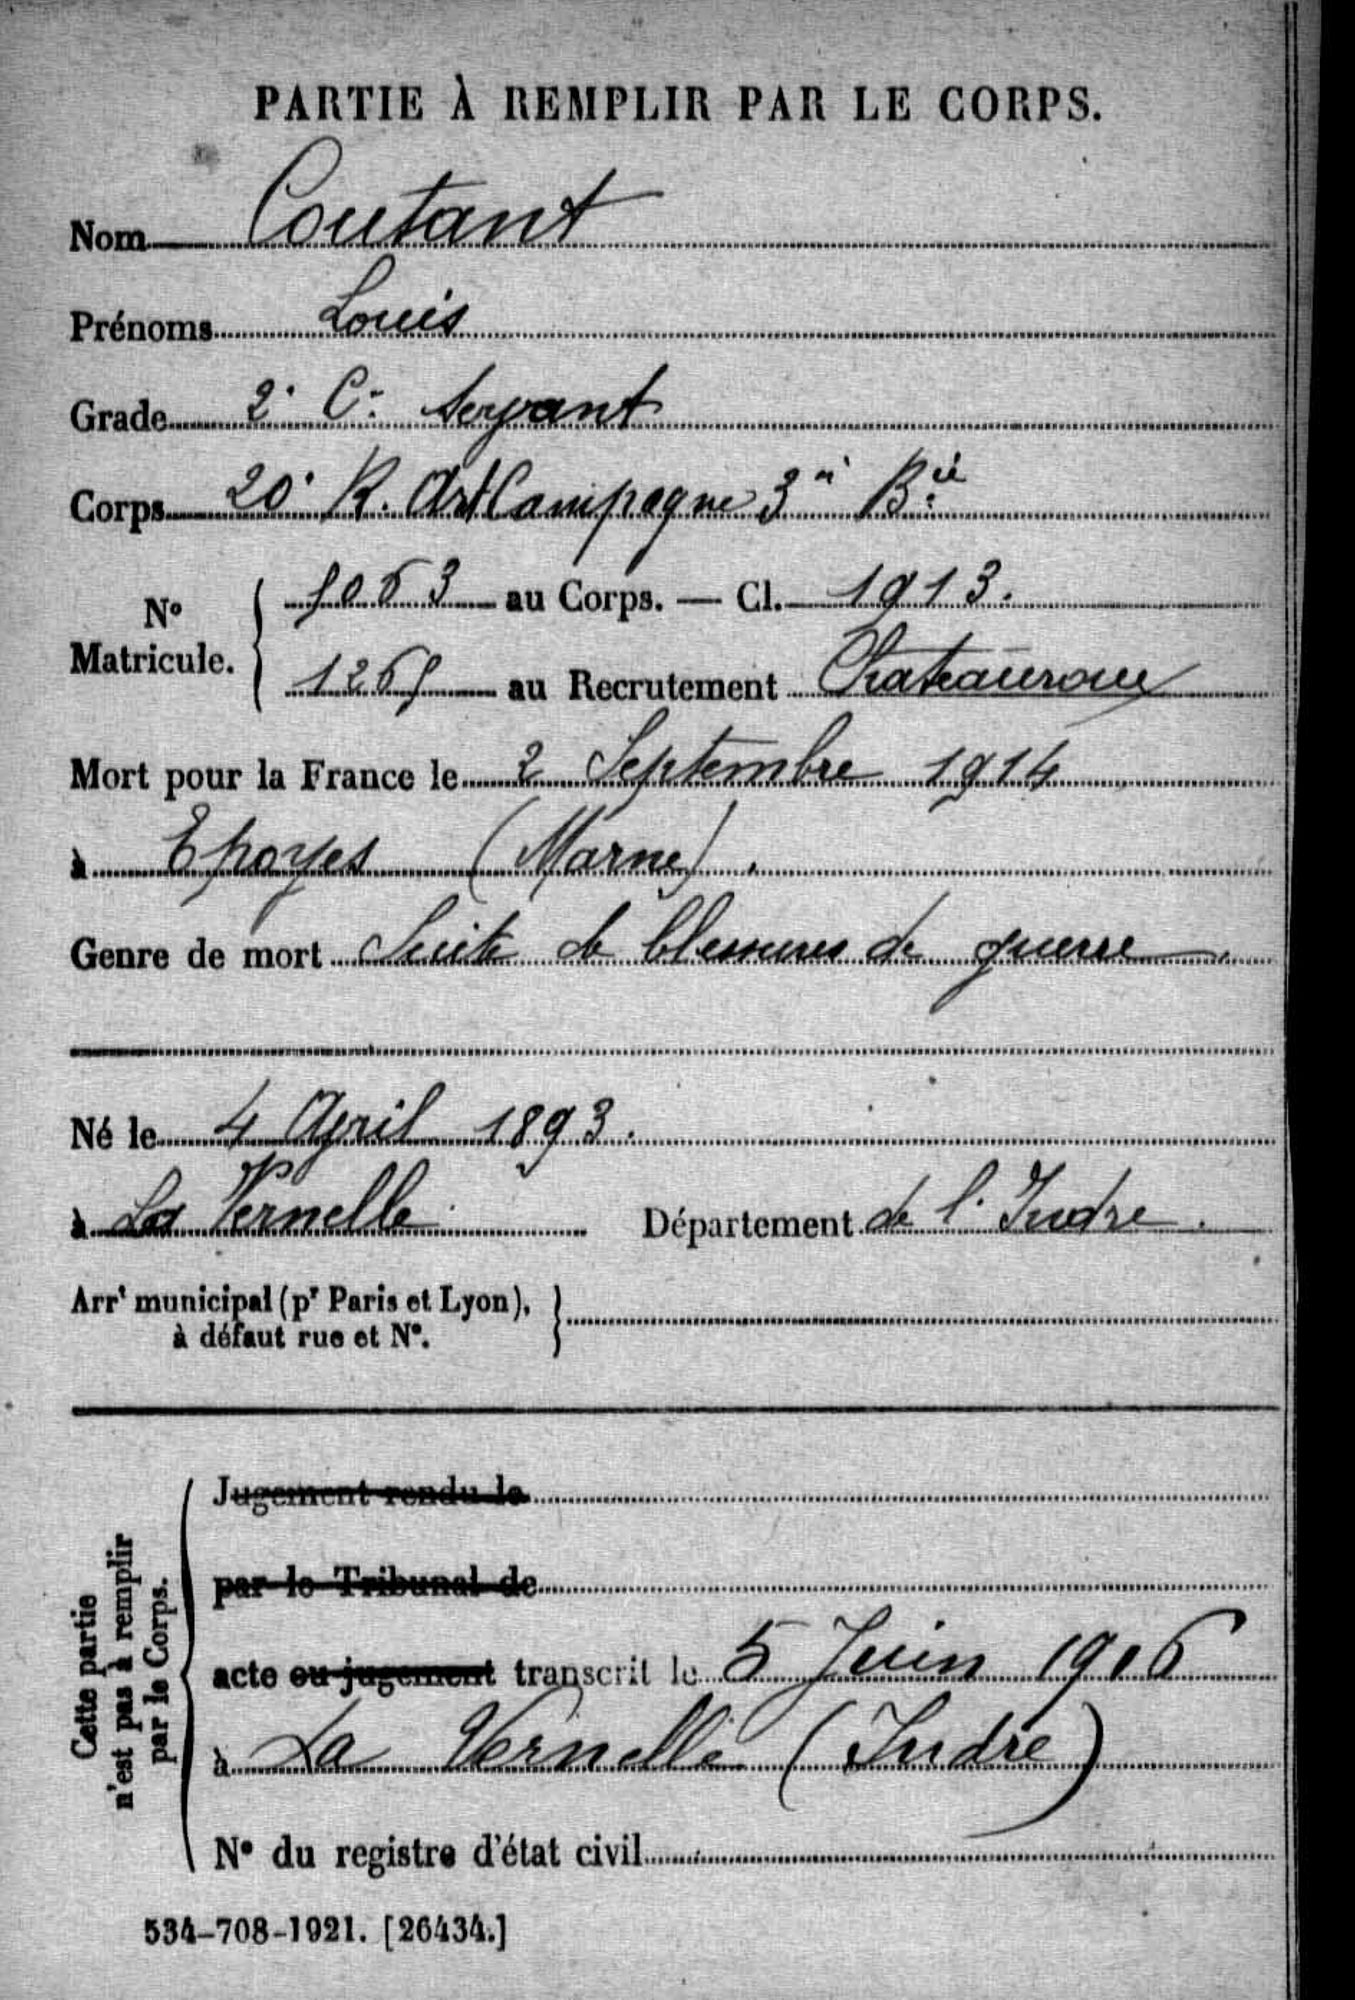 PARTIE À REMPLIR PAR LE CORPS.
Nom Coutant
Prénoms Louis
Grade 2e Cr Servant
Corps 20e R. Art Campagne 3e Bie
No Matricule. { 5063 au Corps. — Cl. 1913.
1265 au Recrutement Chateauroux
Mort pour la France le 2 Septembre 1914
à Epoyes (Marne).
Genre de mort Suite de blessures de guerre.
Né le 4 Avril 1893.
à La Vernelle Département de l'Indre.
Arrt municipal (pr Paris et Lyon),
à défaut rue et No.
Cette partie
n'est pas à remplir
par le Corps.
Jugement rendu le
par le Tribunal de
acte ou jugement transcrit le 5 Juin 1916
à La Vernelle (Indre)
No du registre d'état civil
534-708-1921. [26434.]